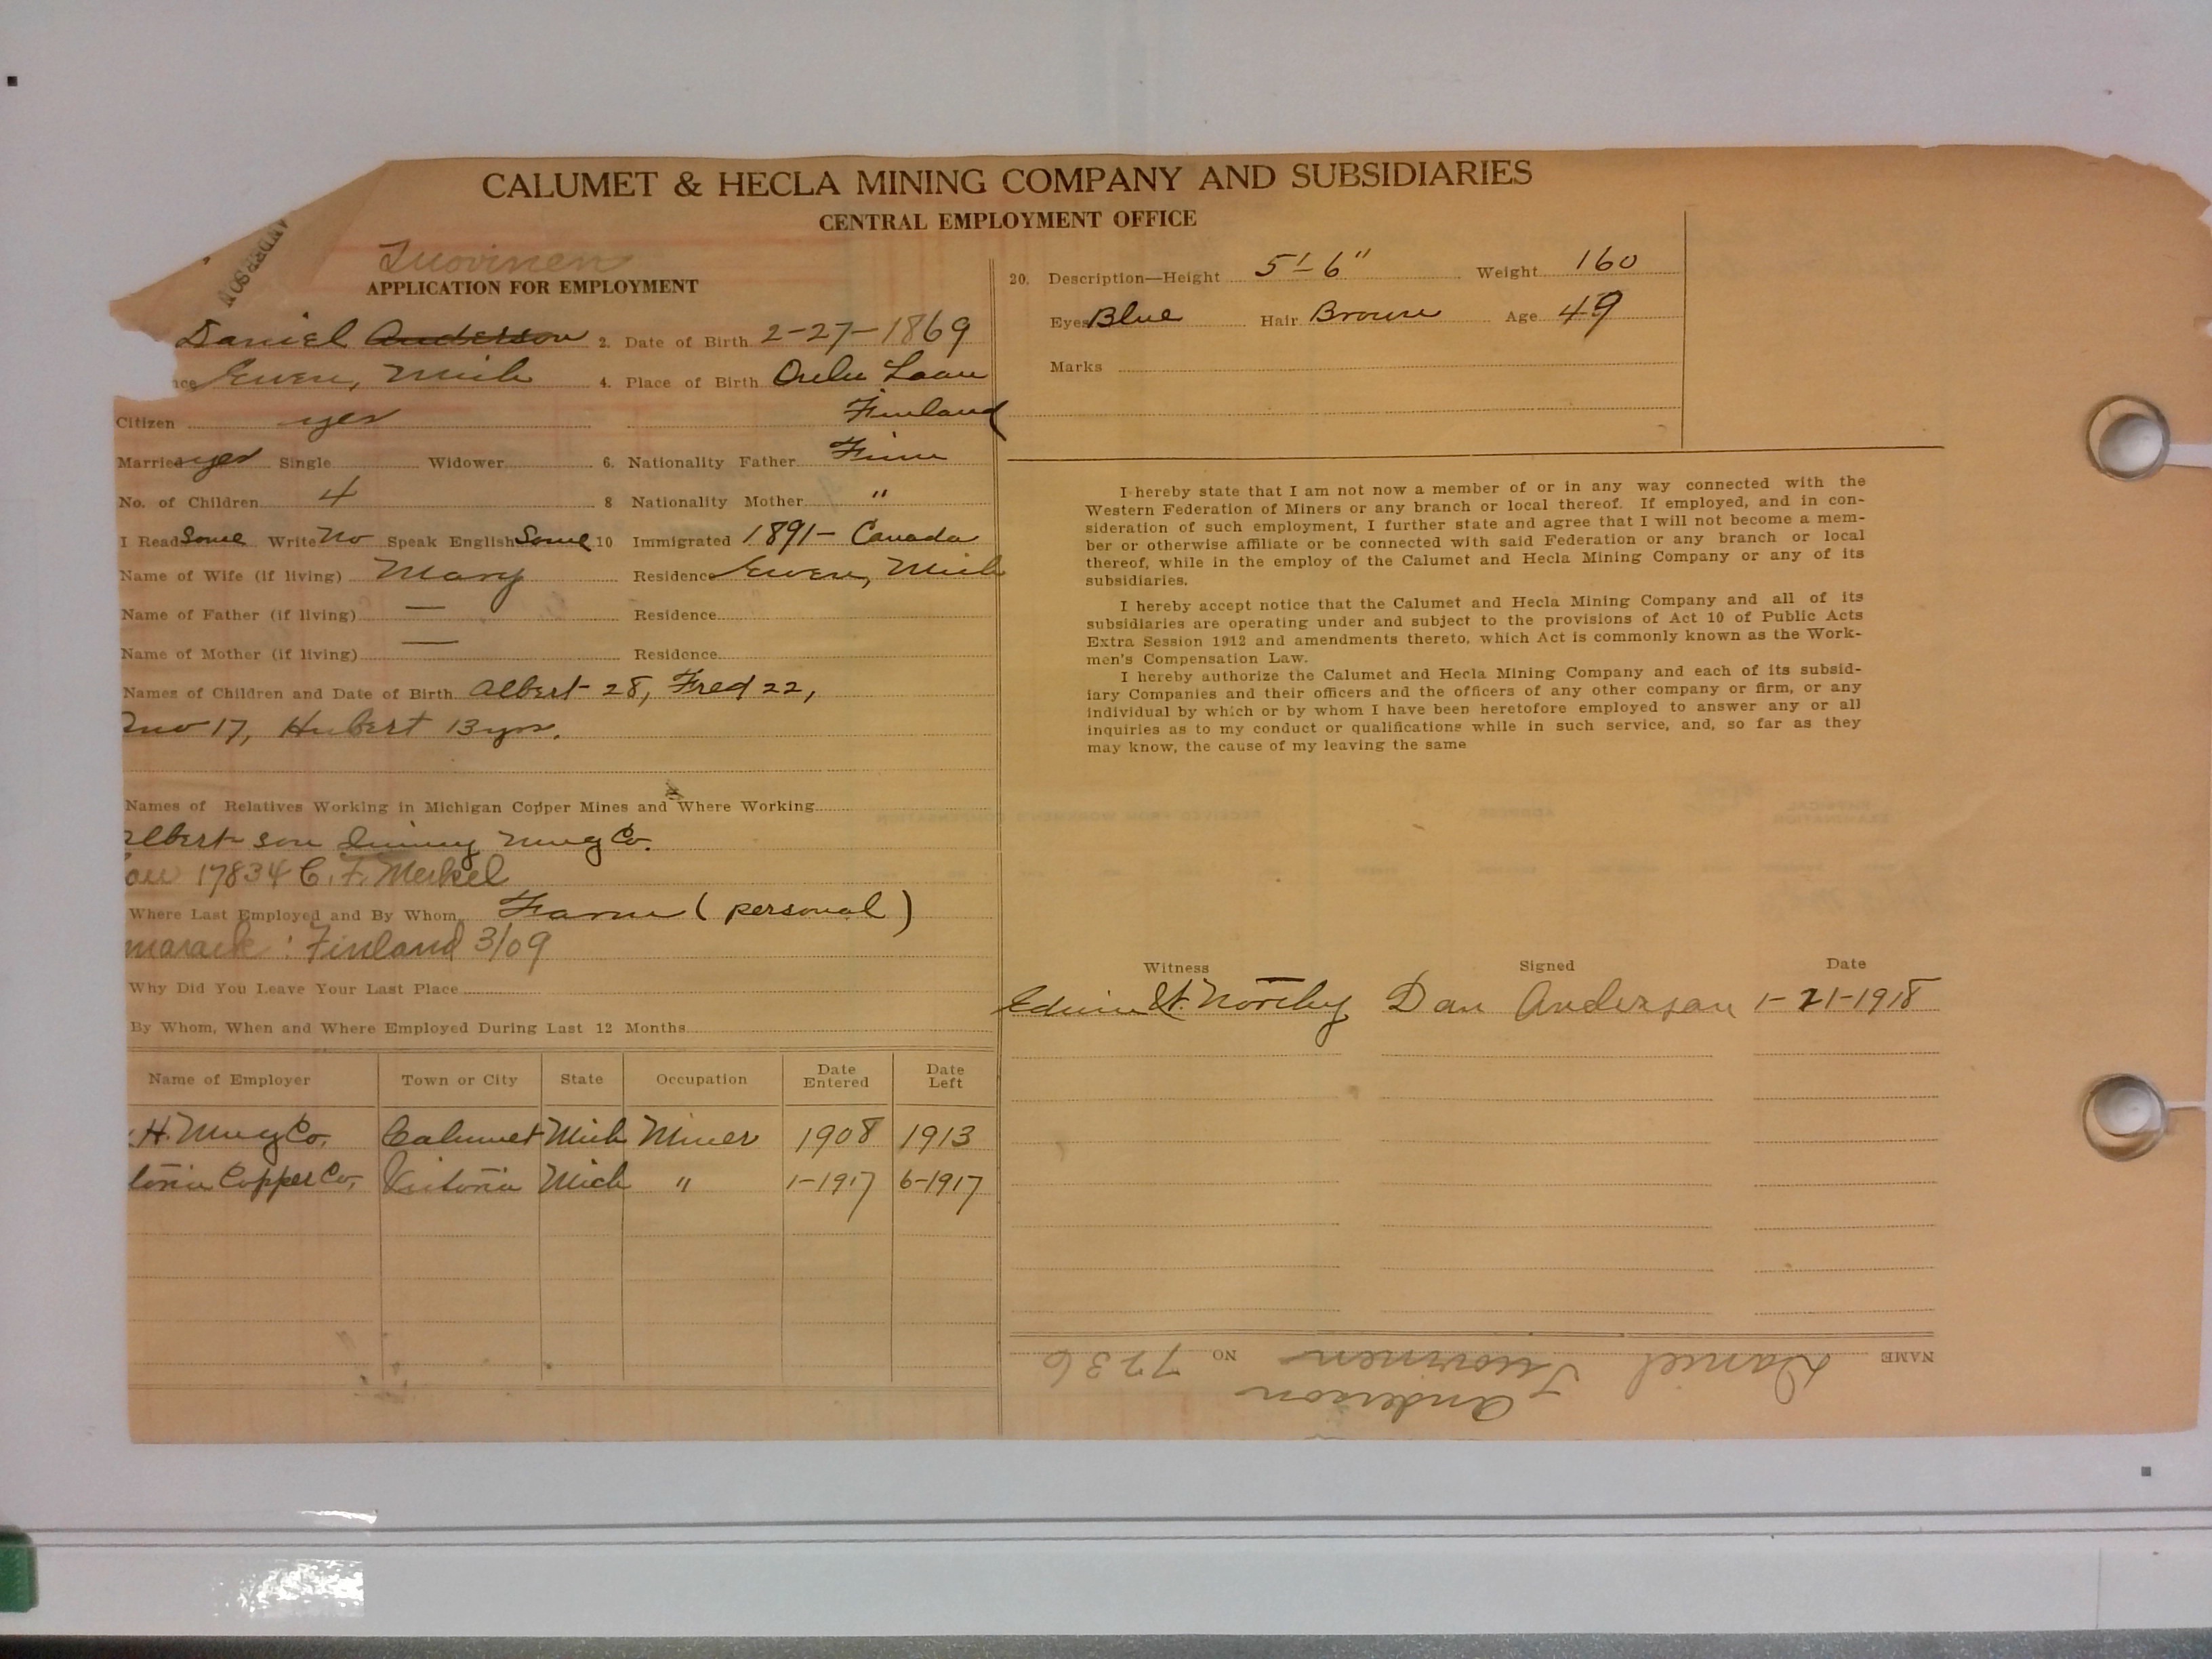 CALUMET & HECLA MINING COMPANY AND SUBSIDIARIES
CENTRAL EMPLOYMENT OFFICE
ANDERSON
Tuovinen
APPLICATION FOR EMPLOYMENT
Daniel Anderson 2. Date of Birth 2-27-1869
Ewen, Mich 4. Place of Birth Oulu Laan
Citizen yes Finland
Married yes Single Widower 6. Nationality Father Finn
No. of Children 4 8 Nationality Mother "
I Read Some Write No Speak English Some 10 Immigrated 1891- Canada
Name of Wife (if living) Mary Residence Ewen, Mich
Name of Father (if living) — Residence
Name of Mother (if living) — Residence
Names of Children and Date of Birth Albert 28, Fred 22,
17, Hubert 13 yrs.
Names of Relatives Working in Michigan Copper Mines and Where Working
Albert son Mng Co.
17834 C. F. Merkel
Where Last Employed and By Whom Farm (personal)
marack: Finland 3/09
Why Did You Leave Your Last Place
By Whom, When and Where Employed During Last 12 Months
Name of Employer Town or City State Occupation Date Entered Date Left
H. Mng Co. Calumet Mich Miner 1908 1913
toria Copper Co, Victoria Mich " 1-1917 6-1917
20. Description—Height 5'-6" Weight 160
Eyes Blue Hair Brown Age 49
Marks
I hereby state that I am not now a member of or in any way connected with the
Western Federation of Miners or any branch or local thereof. If employed, and in con-
sideration of such employment, I further state and agree that I will not become a mem-
ber or otherwise affiliate or be connected with said Federation or any branch or local
thereof, while in the employ of the Calumet and Hecla Mining Company or any of its
subsidiaries.
I hereby accept notice that the Calumet and Hecla Mining Company and all of its
subsidiaries are operating under and subject to the provisions of Act 10 of Public Acts
Extra Session 1912 and amendments thereto, which Act is commonly known as the Work-
men's Compensation Law.
I hereby authorize the Calumet and Hecla Mining Company and each of its subsid-
iary Companies and their officers and the officers of any other company or firm, or any
individual by which or by whom I have been heretofore employed to answer any or all
inquiries as to my conduct or qualifications while in such service, and, so far as they
may know, the cause of my leaving the same
Witness Signed Date
Edwin Dan Anderson 1-21-1918
NAME Daniel Tuovinen NO 7236
Anderson